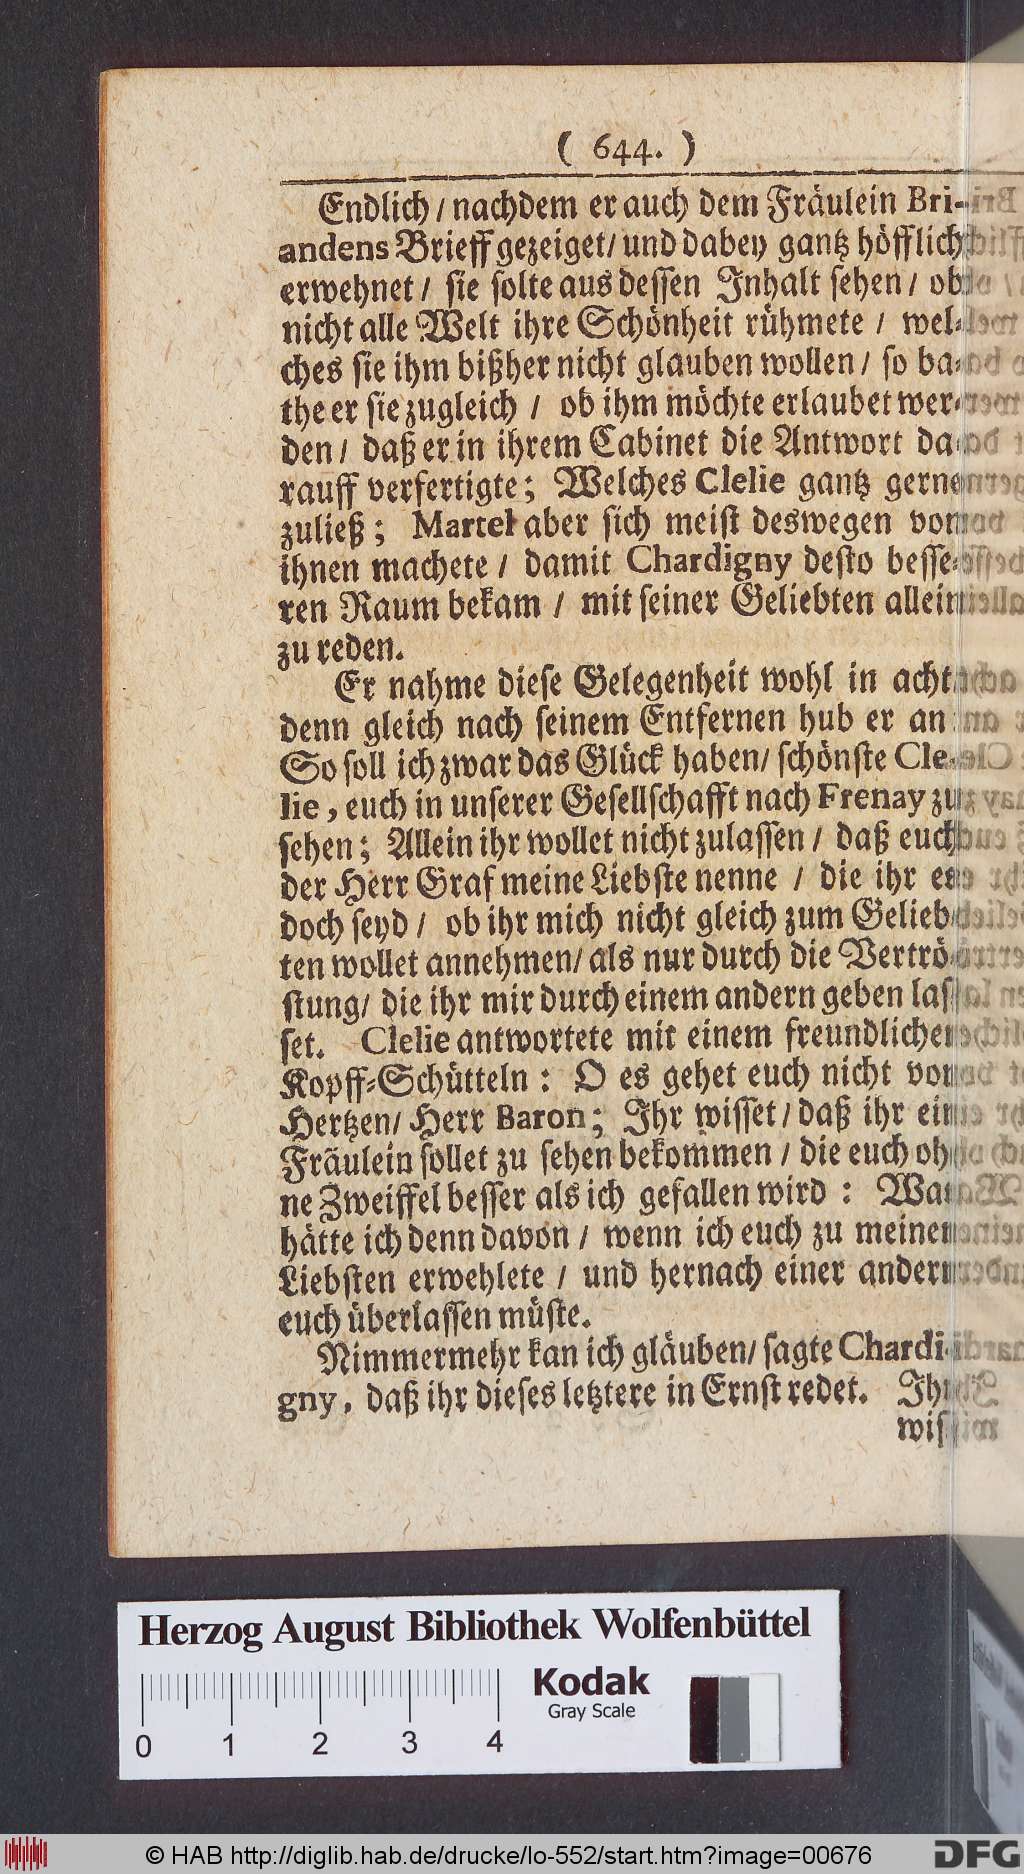 ( 644. )
Endlich / nachdem er auch dem Fräulein Bri-
andens Brieff gezeiget / und dabey gantz höfflich
erwehnet / sie solte aus dessen Inhalt sehen / ob
nicht alle Welt ihre Schönheit rühmete / wel-
ches sie ihm bißher nicht glauben wollen / so ba-
the er sie zugleich / ob ihm möchte erlaubet wer-
den / daß er in ihrem Cabinet die Antwort da-
rauff verfertigte; Welches Clelie gantz gerne
zuließ; Martel aber sich meist deswegen von
ihnen machete / damit Chardigny desto besse-
ren Raum bekam / mit seiner Geliebten allein
zu reden.
Er nahme diese Gelegenheit wohl in acht
denn gleich nach seinem Entfernen hub er an
So soll ich zwar das Glück haben / schönste Cle-
lie, euch in unserer Gesellschafft nach Frenay zu
sehen; Allein ihr wollet nicht zulassen / daß euch
der Herr Graf meine Liebste nenne / die ihr es
doch seyd / ob ihr mich nicht gleich zum Gelieb-
ten wollet annehmen / als nur durch die Vertrö-
stung / die ihr mir durch einem andern geben las-
set. Clelie antwortete mit einem freundlichen
Kopff-Schütteln: O es gehet euch nicht von
Hertzen / Herr Baron; Ihr wisset / daß ihr ein
Fräulein sollet zu sehen bekommen / die euch oh-
ne Zweiffel besser als ich gefallen wird: Was
hätte ich denn davon / wenn ich euch zu meinen
Liebsten erwehlete / und hernach einer andern
euch überlassen müste.
Nimmermehr kan ich gläuben / sagte Chardi-
gny, daß ihr dieses letztere in Ernst redet. Ihr
wis-
Herzog August Bibliothek Wolfenbüttel
Kodak
Gray Scale
0 1 2 3 4
© HAB http://diglib.hab.de/drucke/lo-552/start.htm?image=00676
DFG